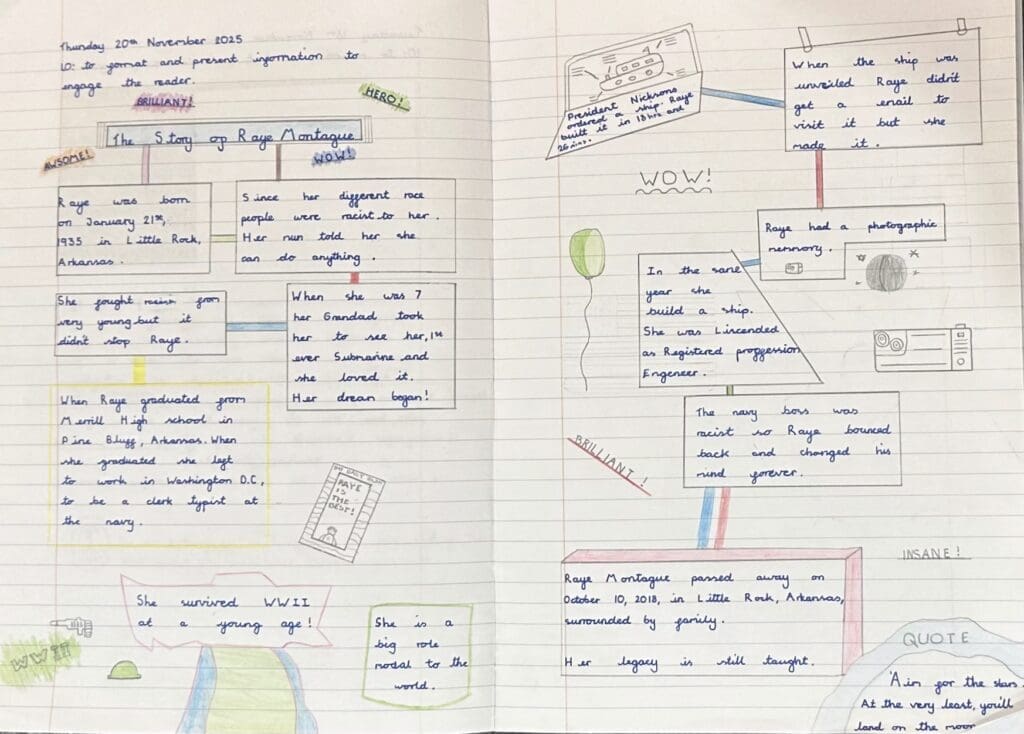 Thursday 20th November 2025
LO: to format and present information to
engage the reader.
BRILLIANT!
HERO!
The Story of Raye Montague
AWSOME!
WOW!
Raye was born
on January 21st,
1935 in Little Rock,
Arkansas.
Since her different race
people were racist to her.
Her mum told her she
can do anything.
She fought racism from
very young but it
didn't stop Raye.
When she was 7
her Grandad took
her to see her, 1st
ever Submarine and
she loved it.
Her dream began!
When Raye graduated from
Merrill High school in
Pine Bluff, Arkansas. When
she graduated she left
to work in Washington D.C,
to be a clerk typist at
the navy.
RAYE
IS
THE
BEST!
She survived WWII
at a young age!
WWII
She is a
big role
modal to the
world.
President Nicksons
ordered a ship. Raye
built it in 18 hrs and
26 mins.
When the ship was
unveiled Raye didn't
get a email to
visit it but she
made it.
WOW!
Raye had a photographic
memmory.
In the same
year she
build a ship.
She was Liscended
as Registered proffession
Engeneer.
The navy boss was
racist so Raye bounced
back and changed his
mind forever.
BRILLIANT!
INSANE!
Raye Montague passed away on
October 10, 2018, in Little Rock, Arkansas,
surrounded by family.
Her legacy is still taught.
QUOTE
'Aim for the stars.
At the very least, you'll
land on the moon